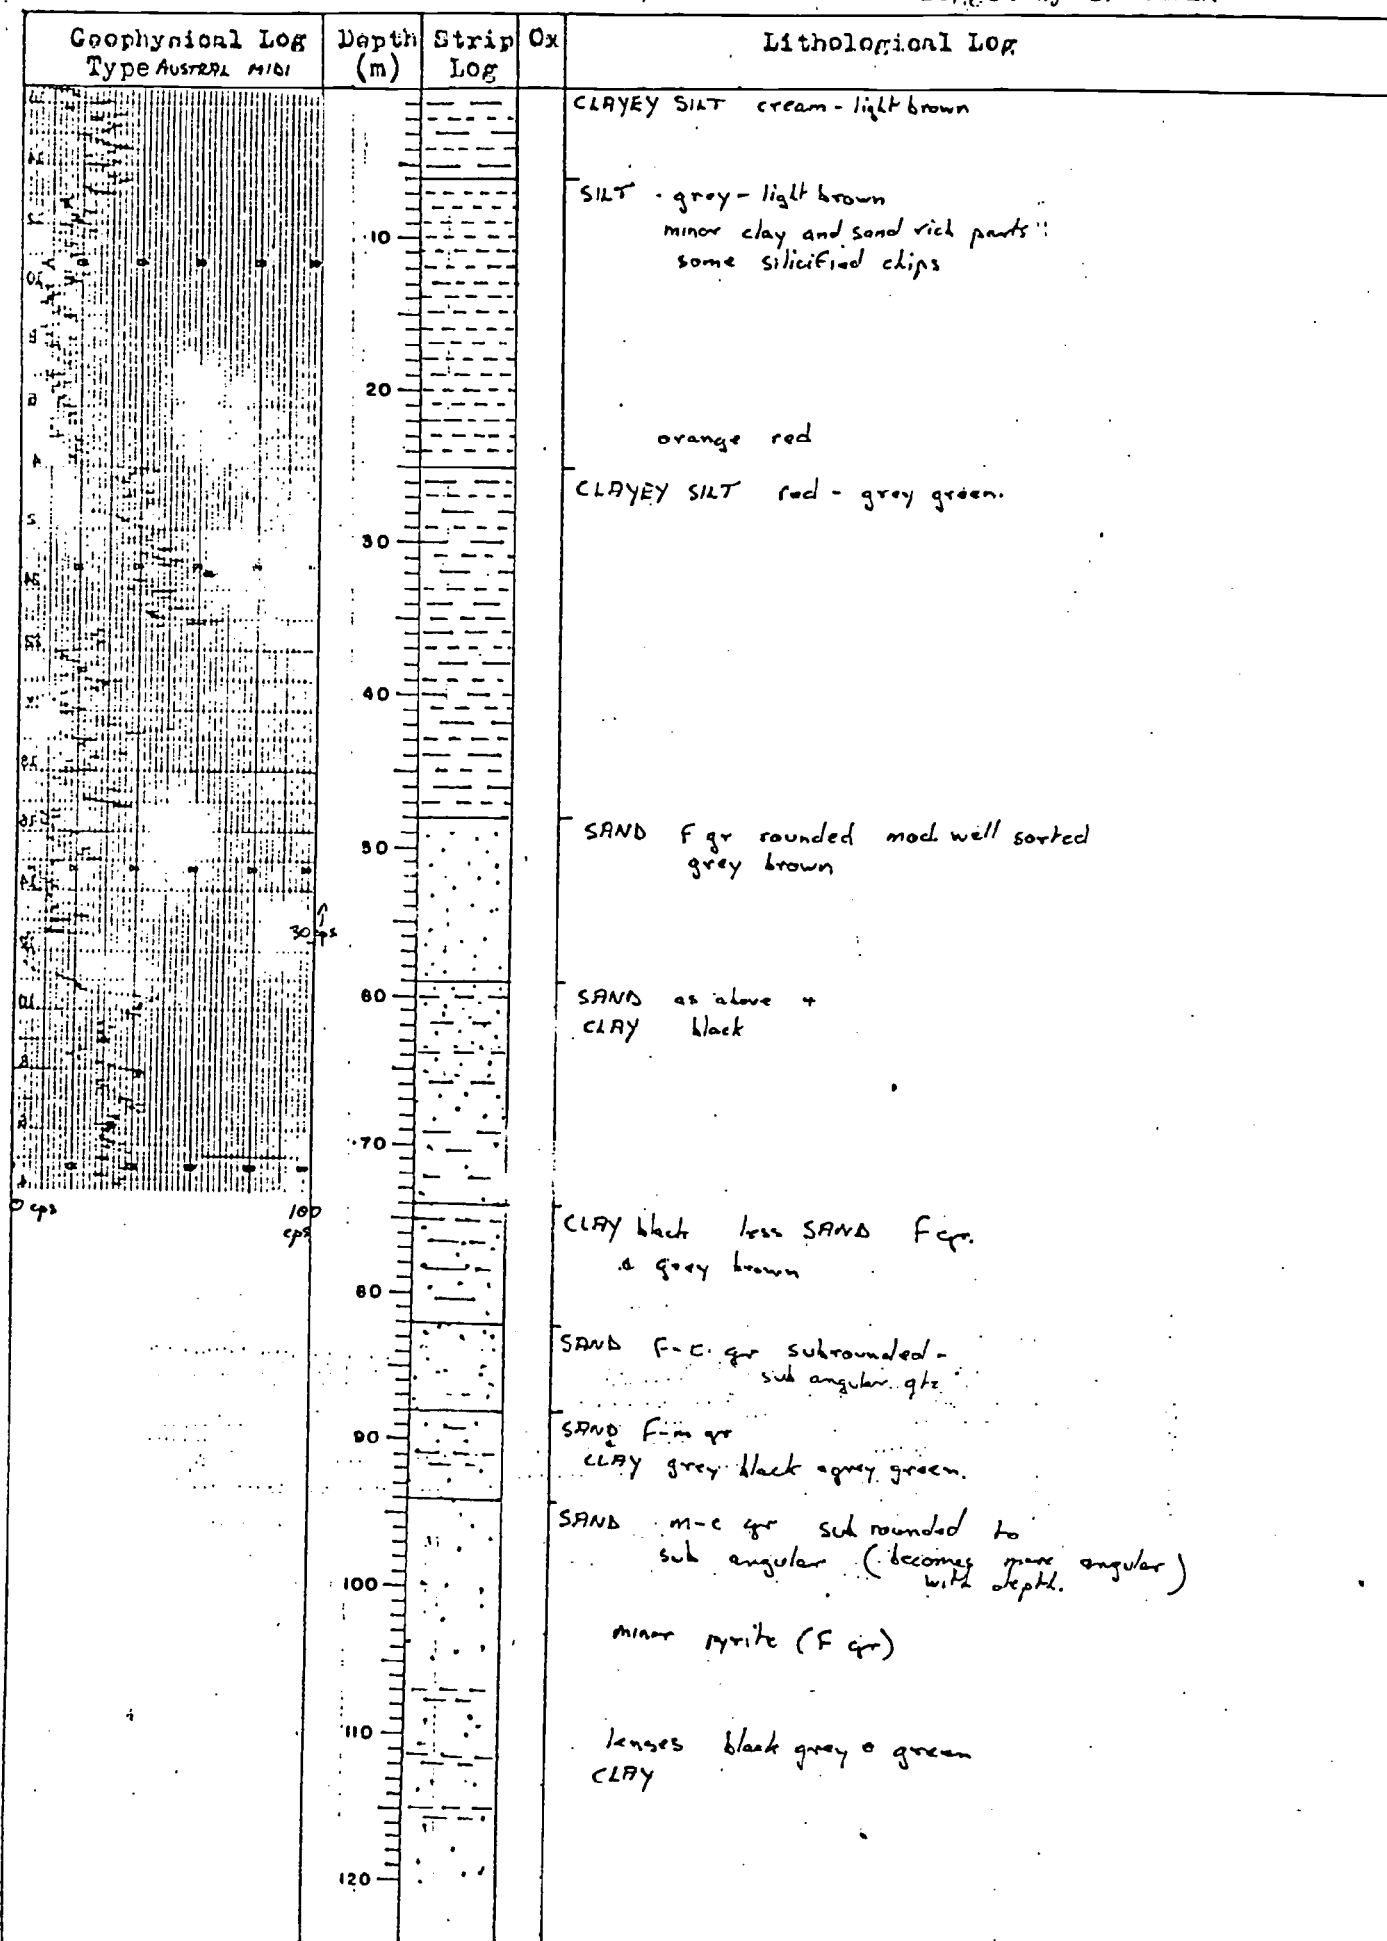 Geophysical Log
Type AUSTRAL MIDI
Depth
(m)
Strip
Log
Ox
Lithological Log
CLAYEY SILT cream - light brown
SILT - grey - light brown
minor clay and sand rich parts
some silicified chips
10
20
orange red
CLAYEY SILT red - grey green.
30
40
SAND F gr rounded mod. well sorted
grey brown
50
30 cps
60
SAND as above +
CLAY black
70
0 cps
100
cps
CLAY black less SAND F gr.
& grey brown
80
SAND F-C. gr subrounded -
sub angular qtz
90
SAND F-m gr
CLAY grey black & grey green.
SAND m-c gr sub rounded to
sub angular (becomes more angular)
with depth.
100
minor pyrite (F gr)
110
lenses black grey & green
CLAY
120